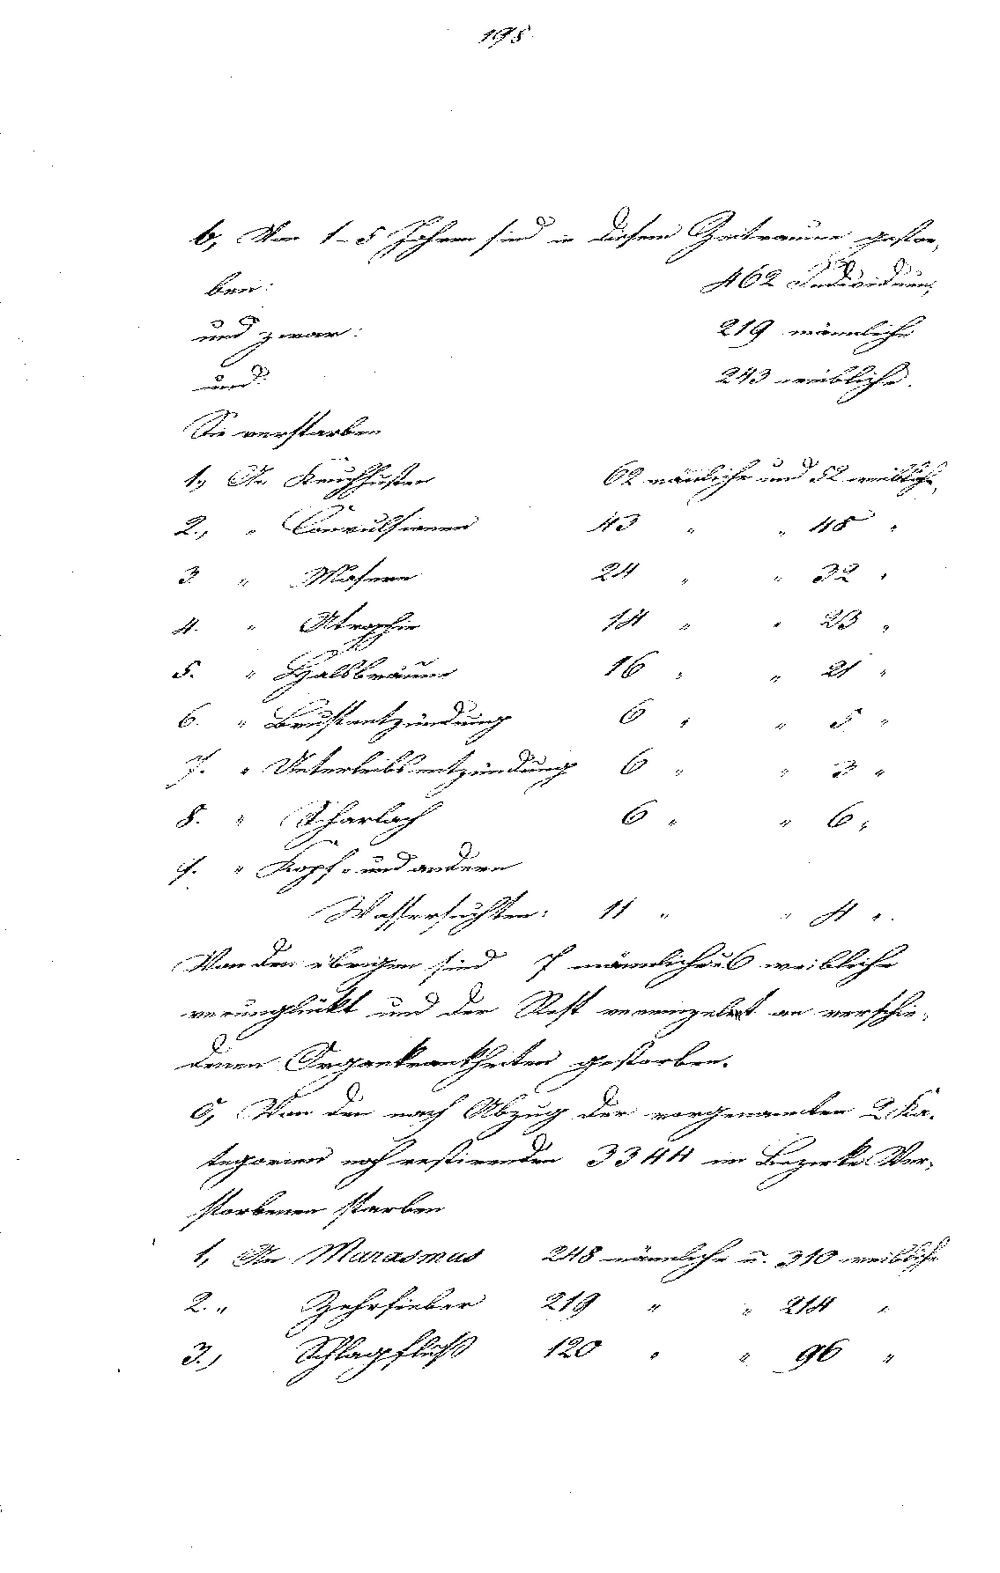 198
b, Von 1-5 Jahren sind in diesem Zeitraume gestor-
ben: 462 Individuen,
und zwar: 219 männliche
und: 243 weibliche.
Sie verstarben
1., An Keuchhusten 62 männliche und 52 weibliche,
2., " Convulsionen 43 " " 48 "
3. " Masern 24 " " 32 "
4. " Atrophie 14 " " 23 "
5. " Halsbräune 16 " " 21 "
6. " Brustentzündung 6 " " 5 "
7. " Unterleibsentzündung 6 " " 3 "
8. " Scharlach 6 " " 6 "
9. " Kopf- und andern
Wassersuchten: 11 " " 4 ".
Von den übrigen sind 7 männliche u. 6 weibliche
verunglückt und der Rest vereinzelt an verschie-
denen Organkrankheiten gestorben.
c, Von den nach Abzug der vorgenannten 2 Ka-
tegorien noch restirenden 3344 im Bezirke Ver-
storbenen starben
1, An Marasmus 248 männliche u. 310 weibliche
2. " Zehrfieber 219 " " 214 "
3.) Schlagfluß 120 " " 96 "